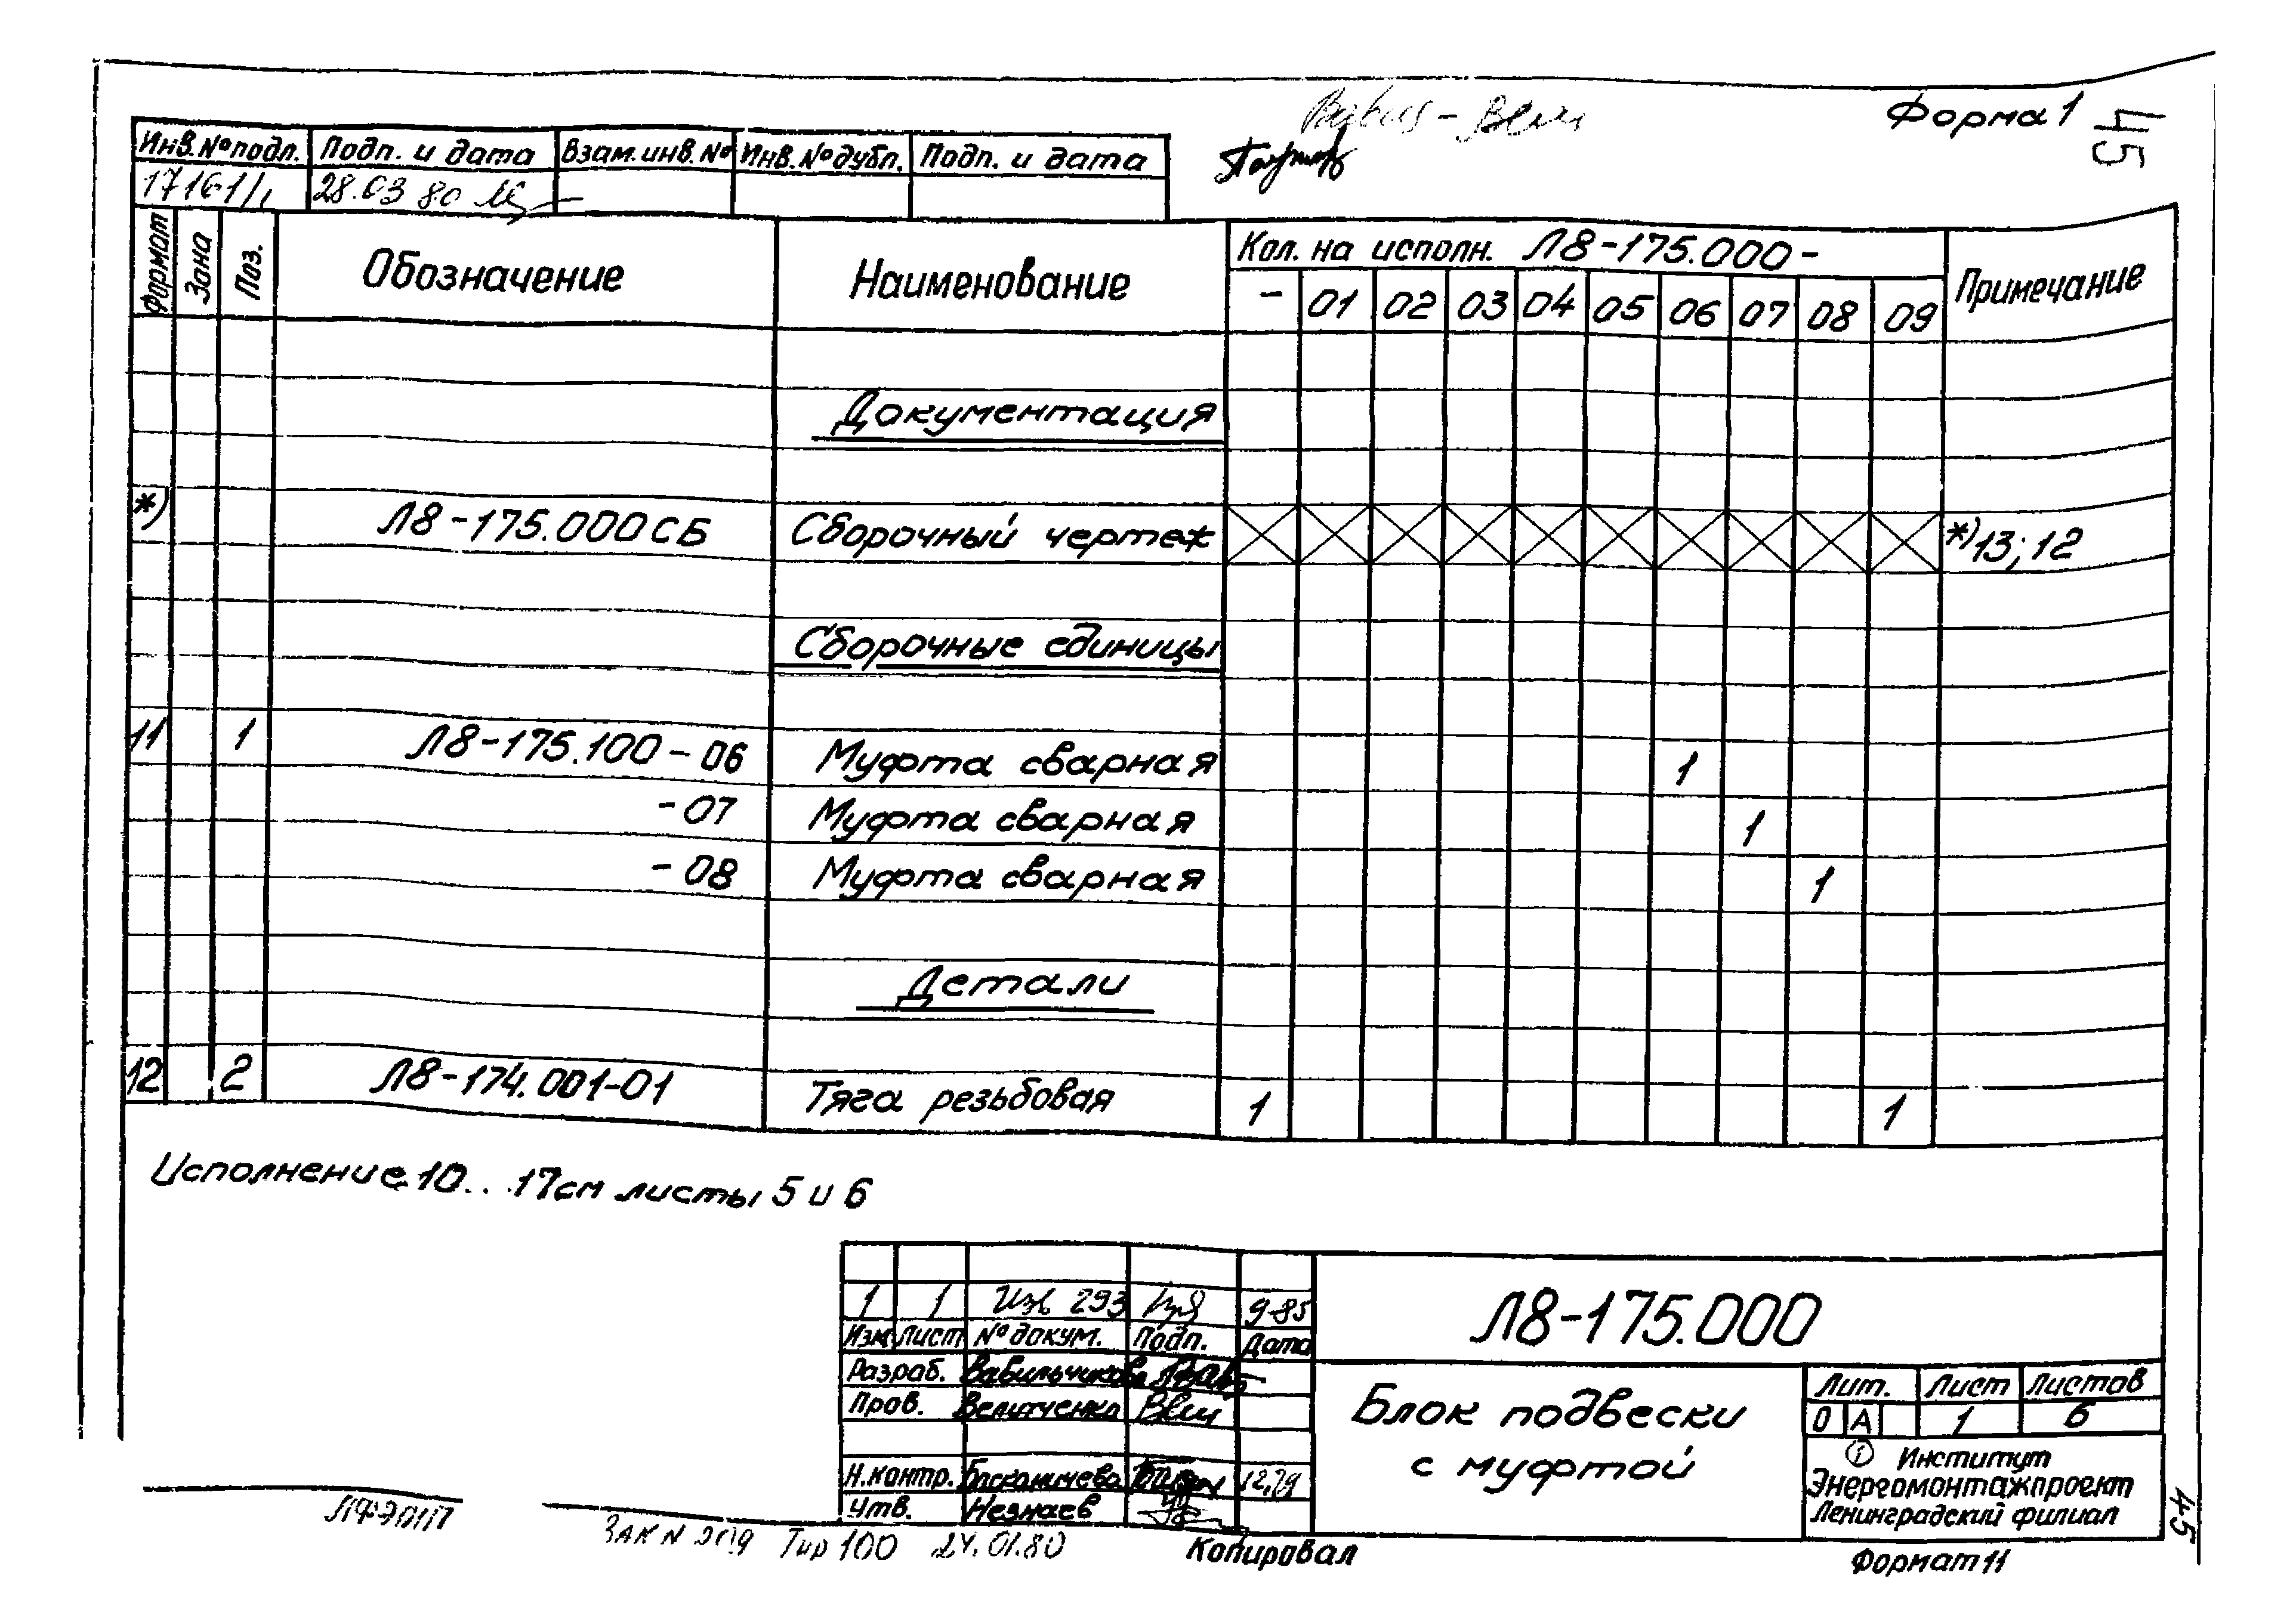 Форма 1
45
Инв.№подл. Подп. и дата Взам.инв.№ Инв.№дубл. Подп. и дата
17161/1 28.03 80
Формат Зона Поз. Обозначение Наименование Кол. на исполн. Л8-175.000- Примечание
- 01 02 03 04 05 06 07 08 09
Документация
*) Л8-175.000СБ Сборочный чертеж *)13; 12
Сборочные единицы
11 1 Л8-175.100-06 Муфта сварная 1
-07 Муфта сварная 1
-08 Муфта сварная 1
Детали
12 2 Л8-174.001-01 Тяга резьбовая 1 1
Исполнение 10...17 см листы 5 и 6
1 1 Изв 293 9-85
Изм Лист № докум. Подп. Дата
Разраб. Вавильчикова
Пров. Величенко
Н.контр. 12.79
Утв. Незнаев
Л8-175.000
Блок подвески
с муфтой
Лит. Лист Листов
О А 1 6
Институт
Энергомонтажпроект
Ленинградский филиал
ЛФЭМП
Зак N Тир 100 24.01.80
Копировал
Формат 11
45